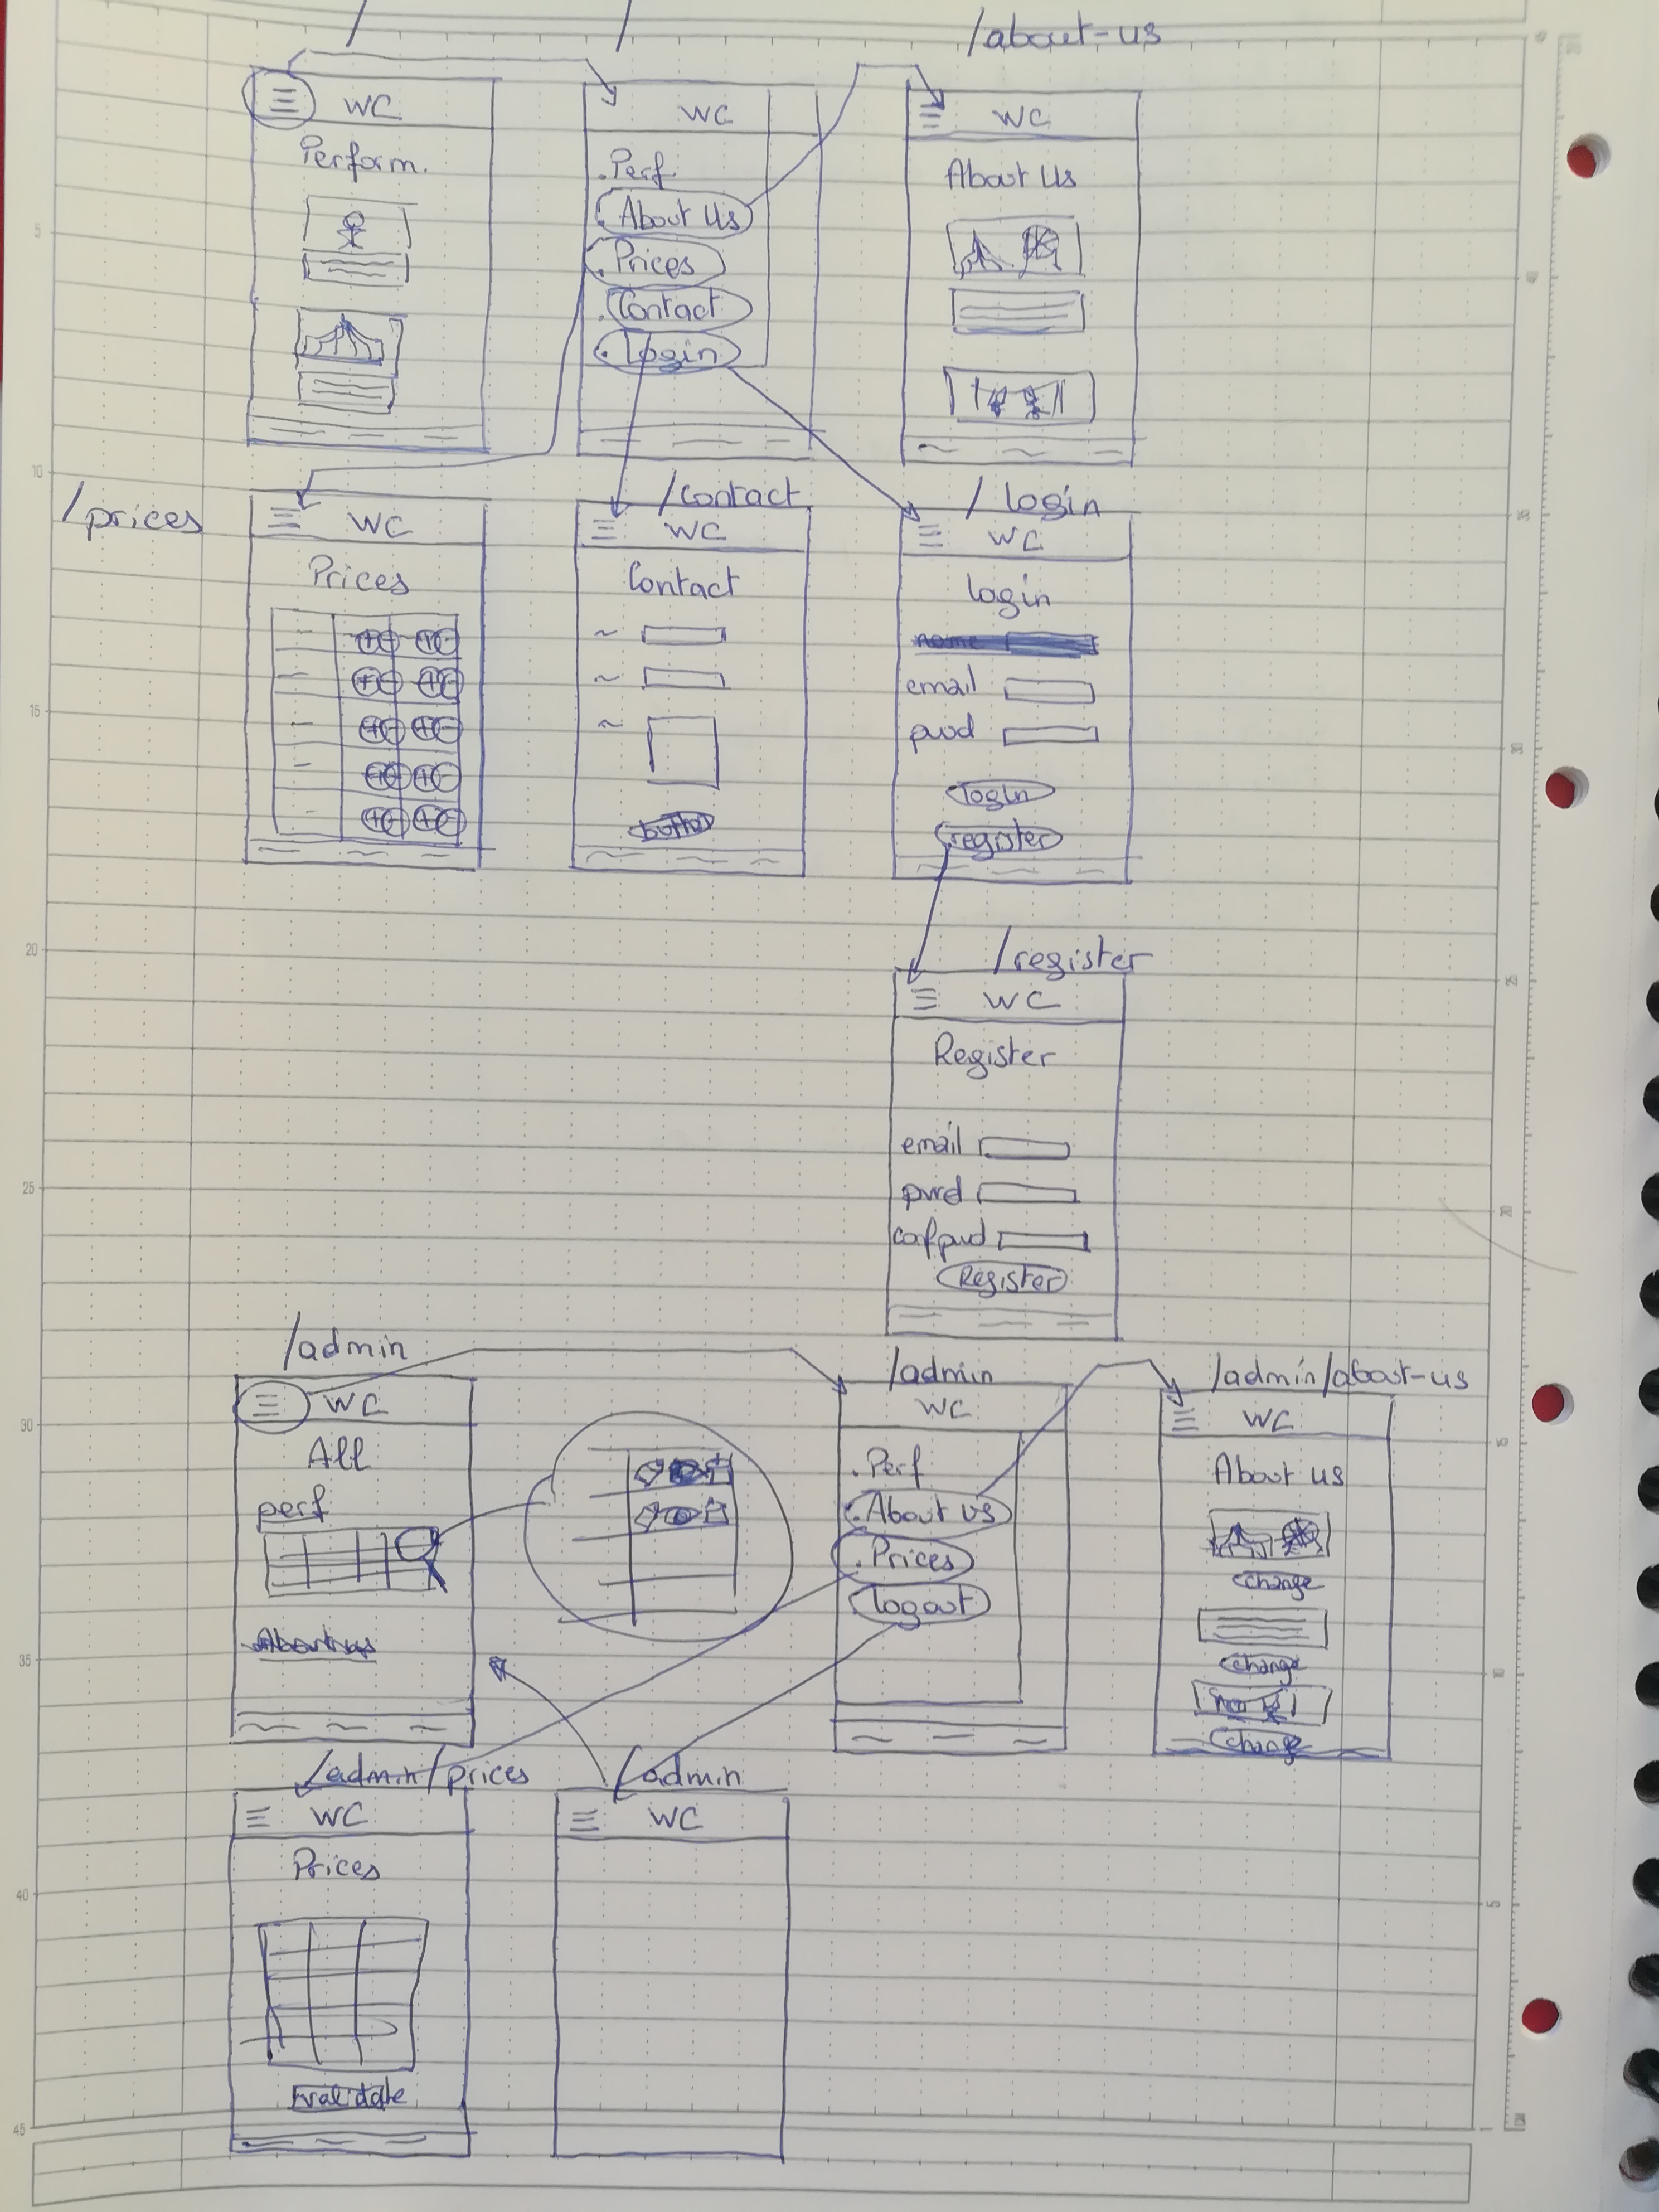 /
/
/about-us
WC
Perform.
WC
. Perf
. About Us
. Prices
. Contact
. login
WC
About Us
/prices
WC
Prices
/contact
WC
Contact
button
/login
WC
login
name
email
pwd
login
register
/register
WC
Register
email
pwd
confpwd
Register
/admin
WC
All
perf
About us
/admin
WC
. Perf
. About us
. Prices
logout
/admin/about-us
WC
About us
change
change
change
/admin/prices
WC
Prices
validate
/admin
WC